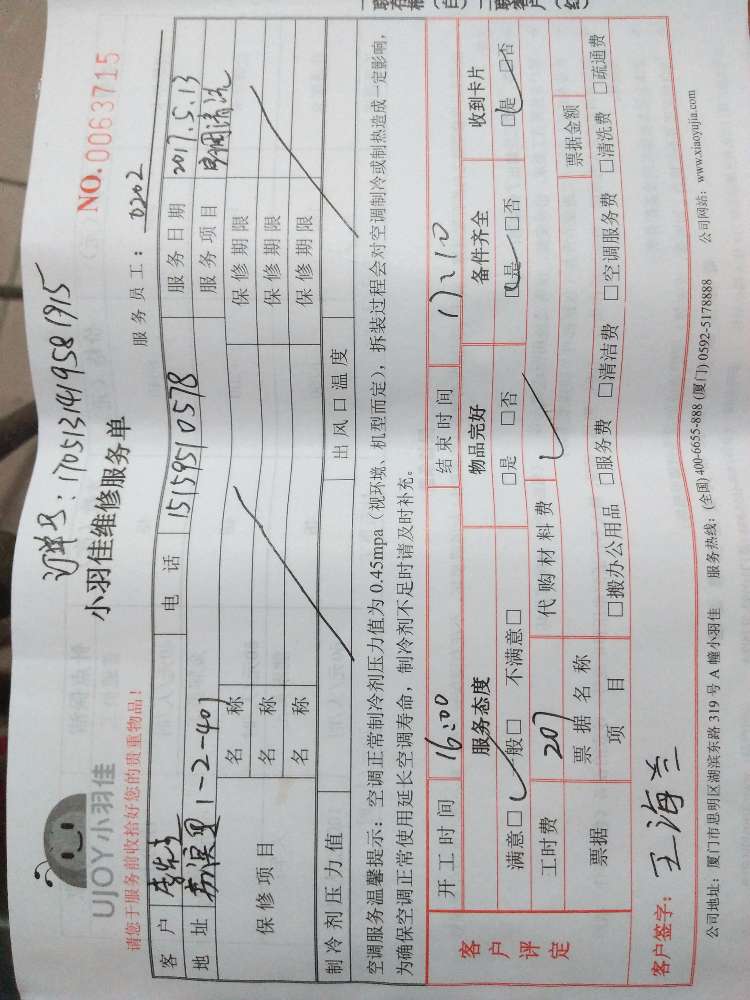 订单号：170513141958​1915
UJOY小羽佳
小羽佳维修服务单
NO.0063715
请您于服务前收拾好您的贵重物品！
服务员工：0202
客户 电话 15159510578 服务日期 2017.5.13
地址 1-2-401 服务项目 空调清洗
保修项目 名称 保修期限
名称 保修期限
名称 保修期限
制冷剂压力值 出风口温度
空调服务温馨提示：空调正常制冷剂压力值为 0.45mpa（视环境、机型而定），拆装过程会对空调制冷或制热造成一定影响，
为确保空调正常使用延长空调寿命，制冷剂不足时请及时补充。
客户评定
开工时间 16:00 结束时间 17:10
服务态度 物品完好 备件齐全 收到卡片
满意□ 一般□ 不满意□ □是 □否 □是 □否 □是 □否
工时费 207 代购材料费
票据 票据名称 票据金额
项目 □搬办公用品 □服务费 □清洁费 □空调服务费 □清洗费 □疏通费
客户签字：王海兰
公司地址：厦门市思明区湖滨东路 319 号 A 幢小羽佳 服务热线：(全国) 400-6655-888 (厦门) 0592-5178888 公司网站：www.xiaoyujia.com